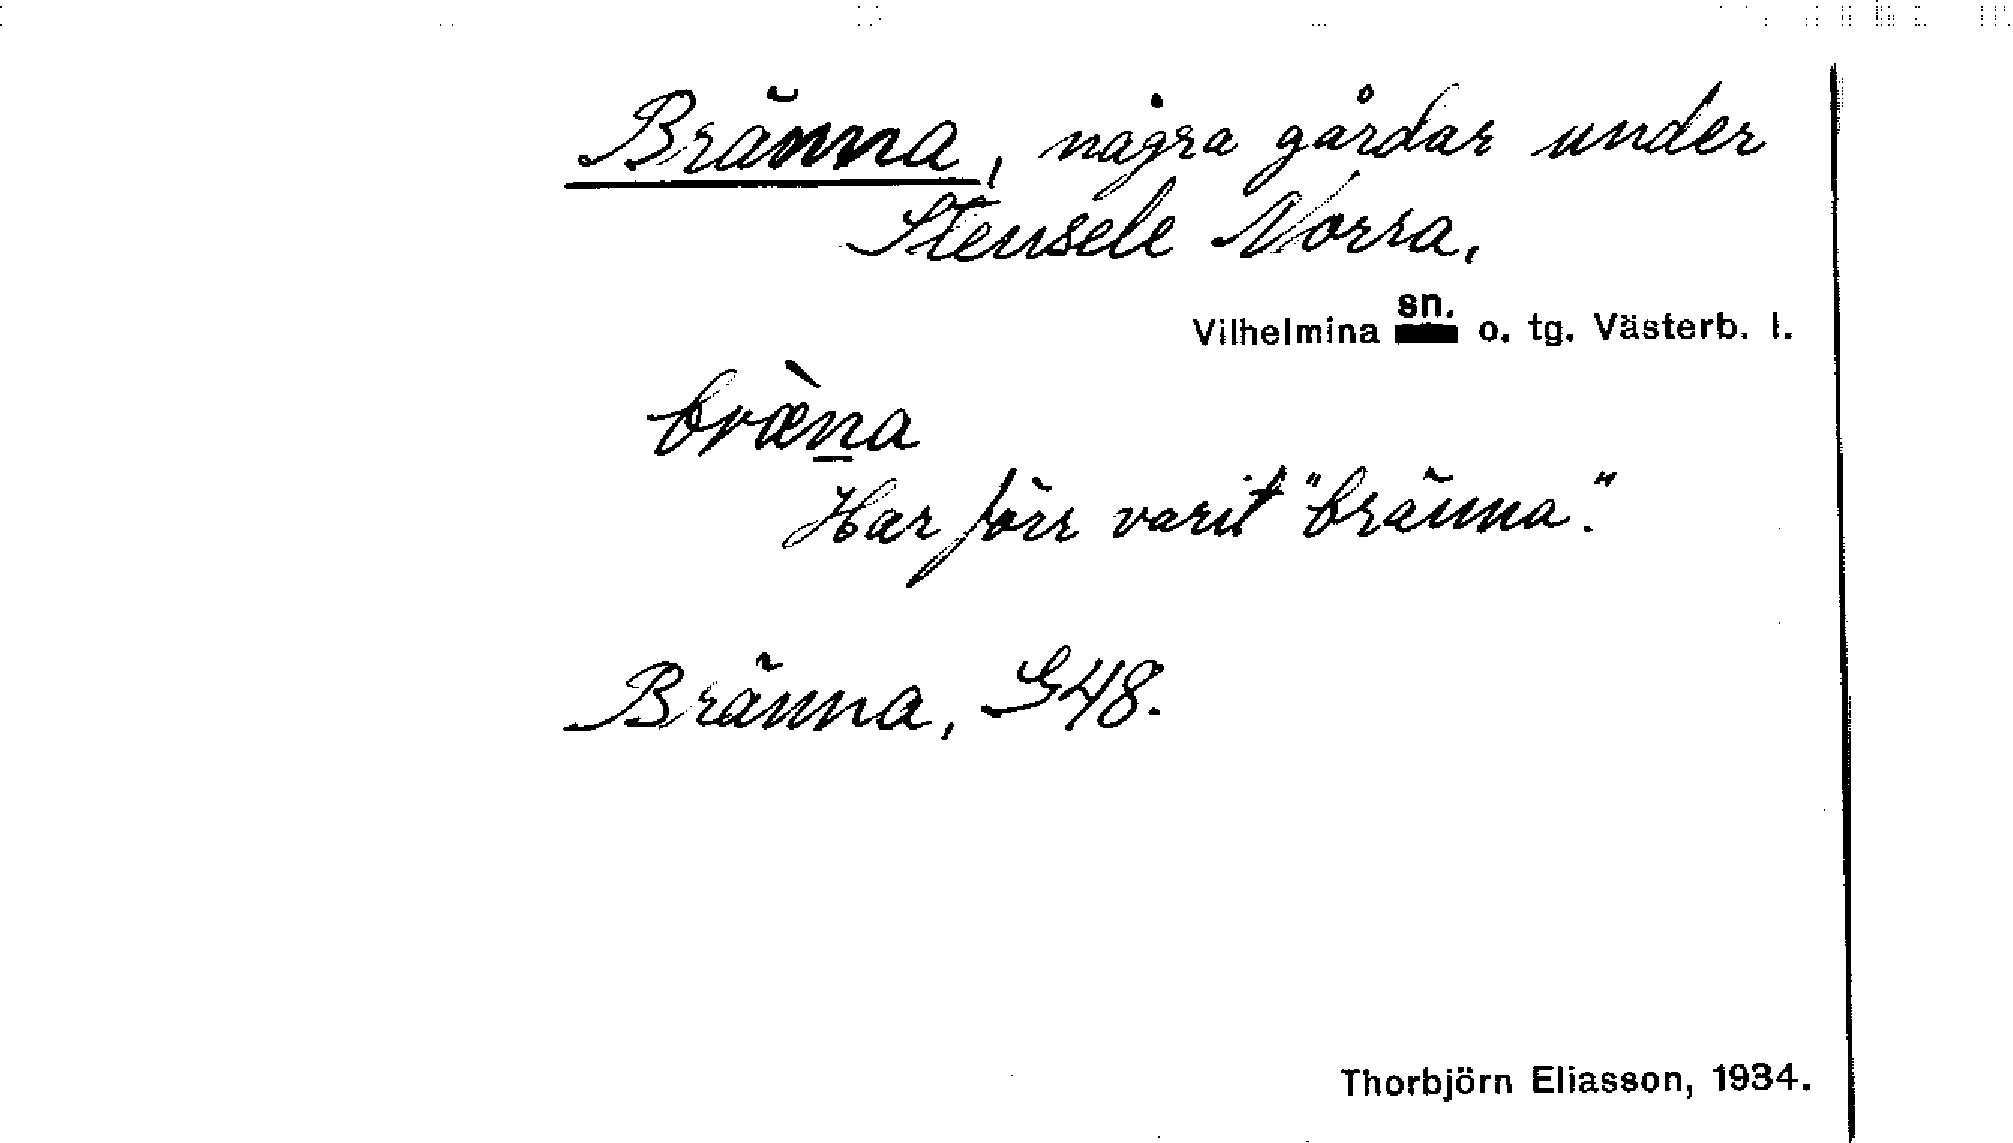 Bränna, några gårdar under
Stensele Norra,
Vilhelmina sn. o. tg. Västerb. l.
bræ̀n̲a
Har förr varit "bränna".
Bränna, G48.
Thorbjörn Eliasson, 1934.